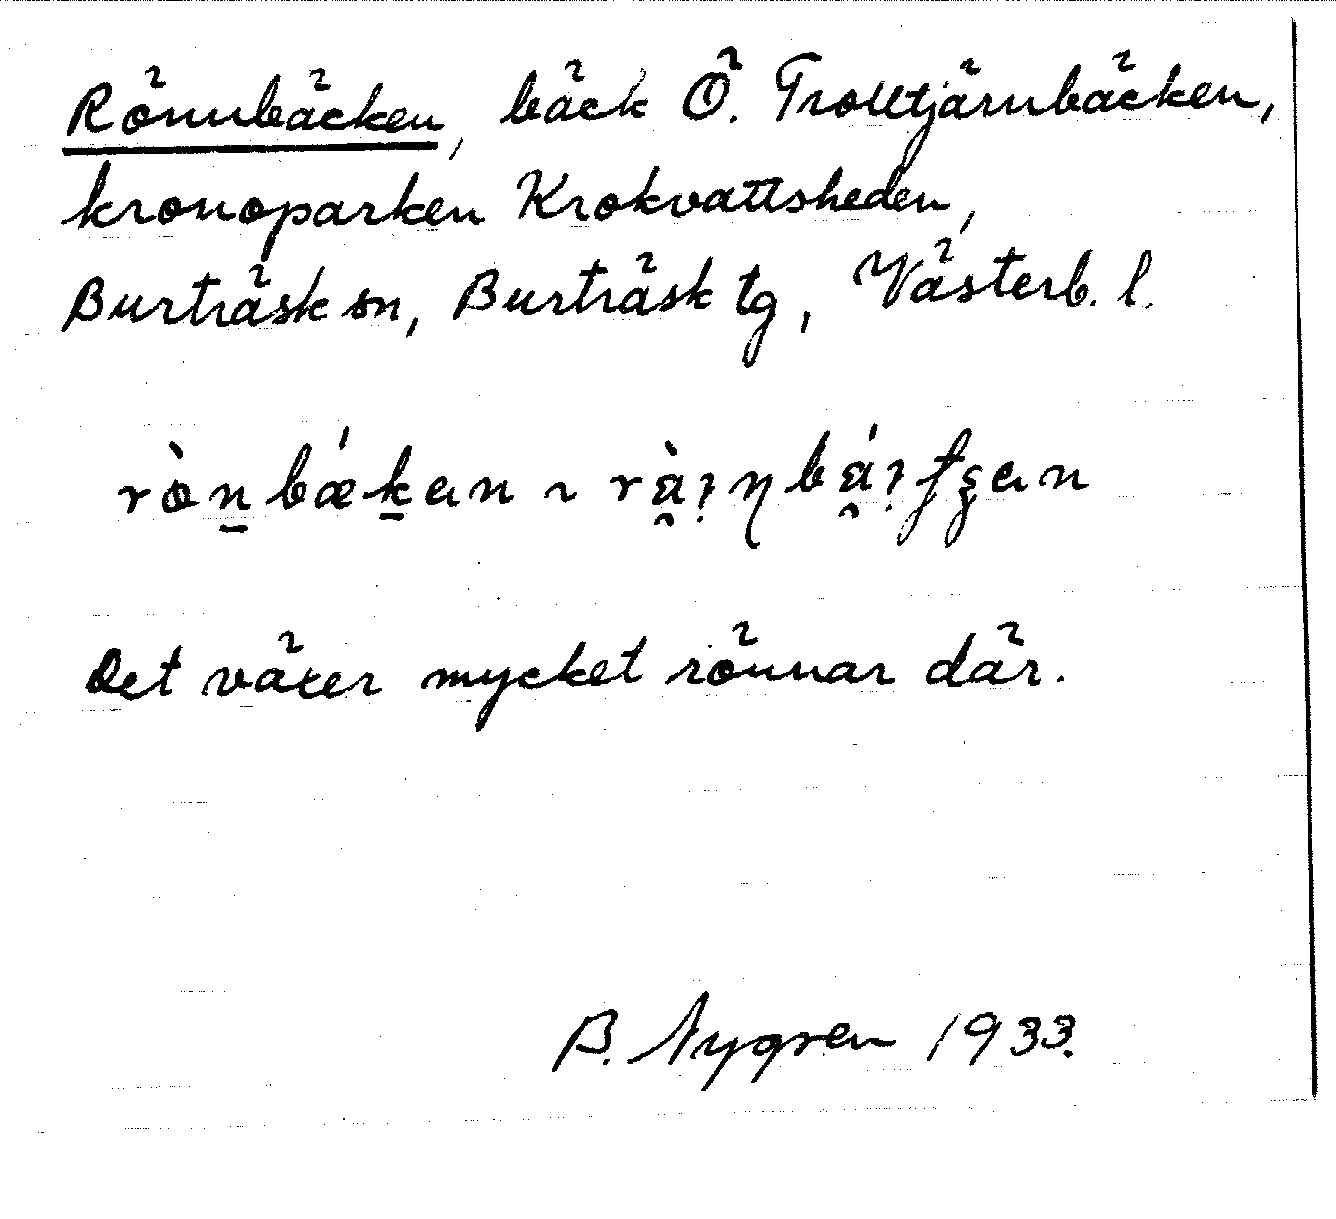 Rönnbäcken, bäck Ö. Trolltjärnbäcken,
kronoparken Krokvattsheden,
Burträsk sn, Burträsk tg, Västerb. l.
Det växer mycket rönnar där.
B. Nygren 1933.